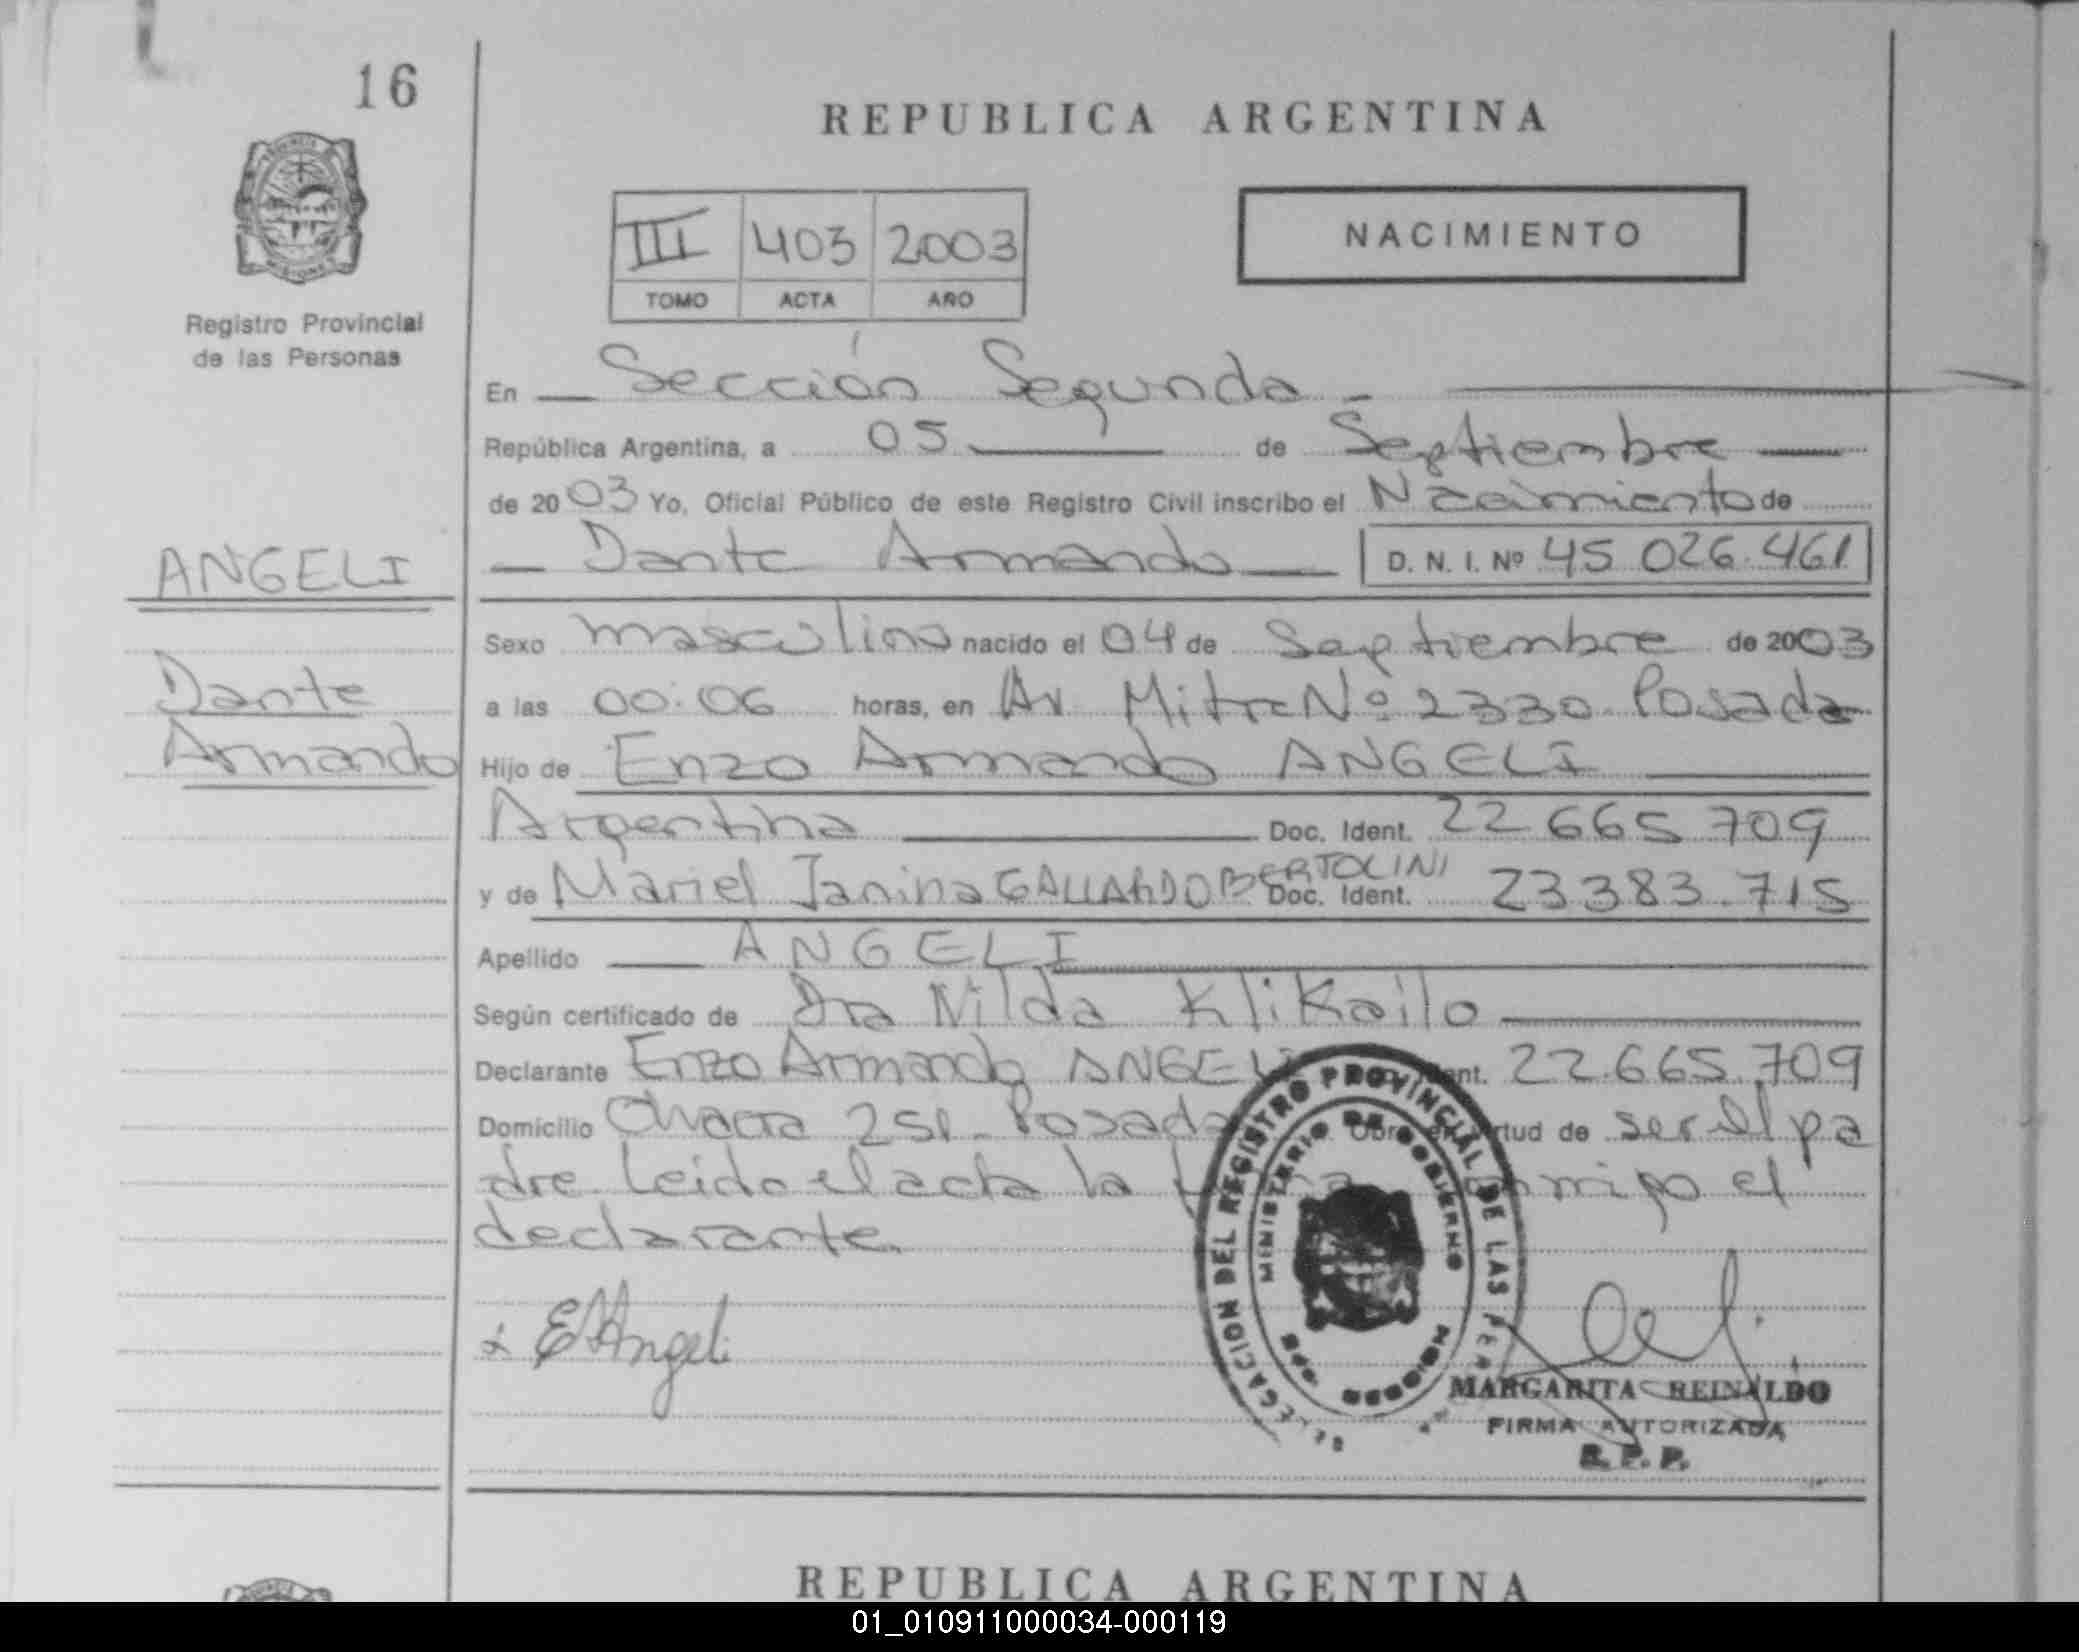 16
REPUBLICA ARGENTINA
NACIMIENTO
III 403 2003
TOMO ACTA AÑO
Registro Provincial
de las Personas
En Sección Segunda
República Argentina, a 05 de Septiembre
de 2003 Yo, Oficial Público de este Registro Civil inscribo el Nacimiento de
Dante Armando D. N. I. Nº 45 026.461
ANGELI
Dante
Armando
Sexo masculino nacido el 04 de Septiembre de 2003
a las 00:06 horas, en Av Mitre Nº 2330 Posada
Hijo de Enzo Armando ANGELI
Argentina Doc. Ident. 22 665 709
y de Mariel Janina GALLARDO BERTOLINI Doc. Ident. 23 383.715
Apellido ANGELI
Según certificado de Dra Nilda Klikailo
Declarante Enzo Armando ANGELI 22.665.709
Domicilio Chacra 251 - Posadas Obra en virtud de ser el pa
dre Leido el acta la conmigo el
declarante.
EAAngeli
DELEGACION DEL REGISTRO PROVINCIAL DE LAS PER
MINISTERIO DE GOBIERNO
MARGARITA REINALDO
FIRMA AUTORIZADA
R. P. P.
REPUBLICA ARGENTINA
01_010911000034-000119